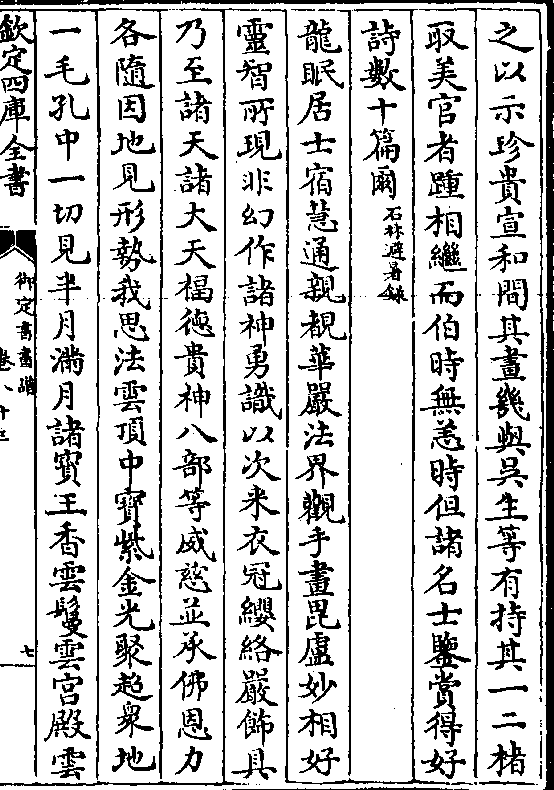 之以示珍貴宣和間其畫幾與吳生等有持其一二楮
取美官者踵相繼而伯時無恙時但諸名士鑒賞得好
詩數十篇爾石林避暑錄
龍眠居士宿慧通親覩華嚴法界觀手畫毘盧妙相好
靈智所現非幻作諸神勇識以次来衣冠纓絡嚴飾具
乃至諸天諸大天福德貴神八部等威慈並承佛恩力
各隨因地見形勢我思法雲頂中寶紫金光聚超衆地
一毛孔中一切見半月滿月諸寳王香雲鬘雲宮殿雲
欽定四庫全書
御定書畫譜
卷八十三
七